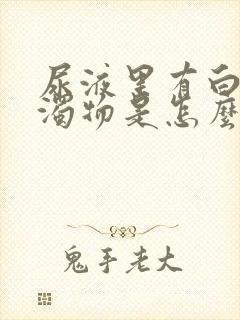 尿液里有白
濁物是怎麼
鬼手老大